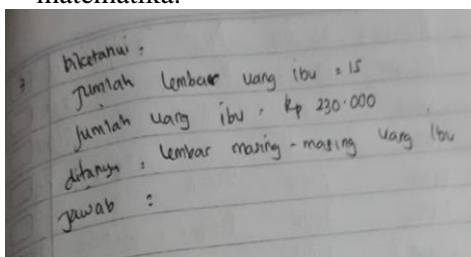 matematika.
Diketahui :
Jumlah lembar uang ibu = 15
Jumlah uang ibu = Rp 230.000
ditanya : lembar masing-masing uang ibu
Jawab :